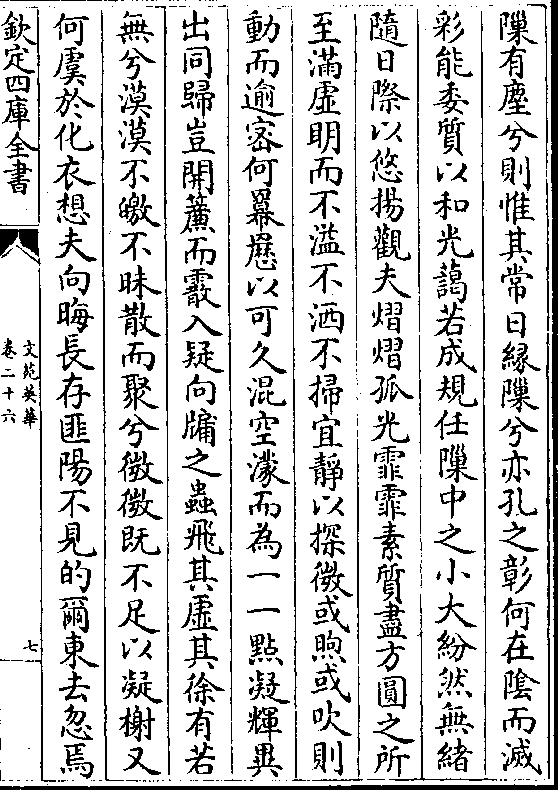 隟有塵兮則惟其常日縁隟兮亦孔之彰何在陰而滅
彩能委質以和光藹若成規任隟中之小大紛然無緒
隨日際以悠揚觀夫熠熠孤光霏霏素質盡方圓之所
至滿虚明而不溢不洒不掃宜靜以探微或煦或吹則
動而逾宻何羃䍥以可久混空濛而為一一點凝輝異
出同歸豈開簾而霰入疑向牖之蟲飛其虚其徐有若
無兮漠漠不皦不昧散而聚兮微微既不足以凝榭又
何虞於化衣想夫向晦長存匪陽不見的爾東去忽焉
欽定四庫全書
文苑英華
卷二十六
七